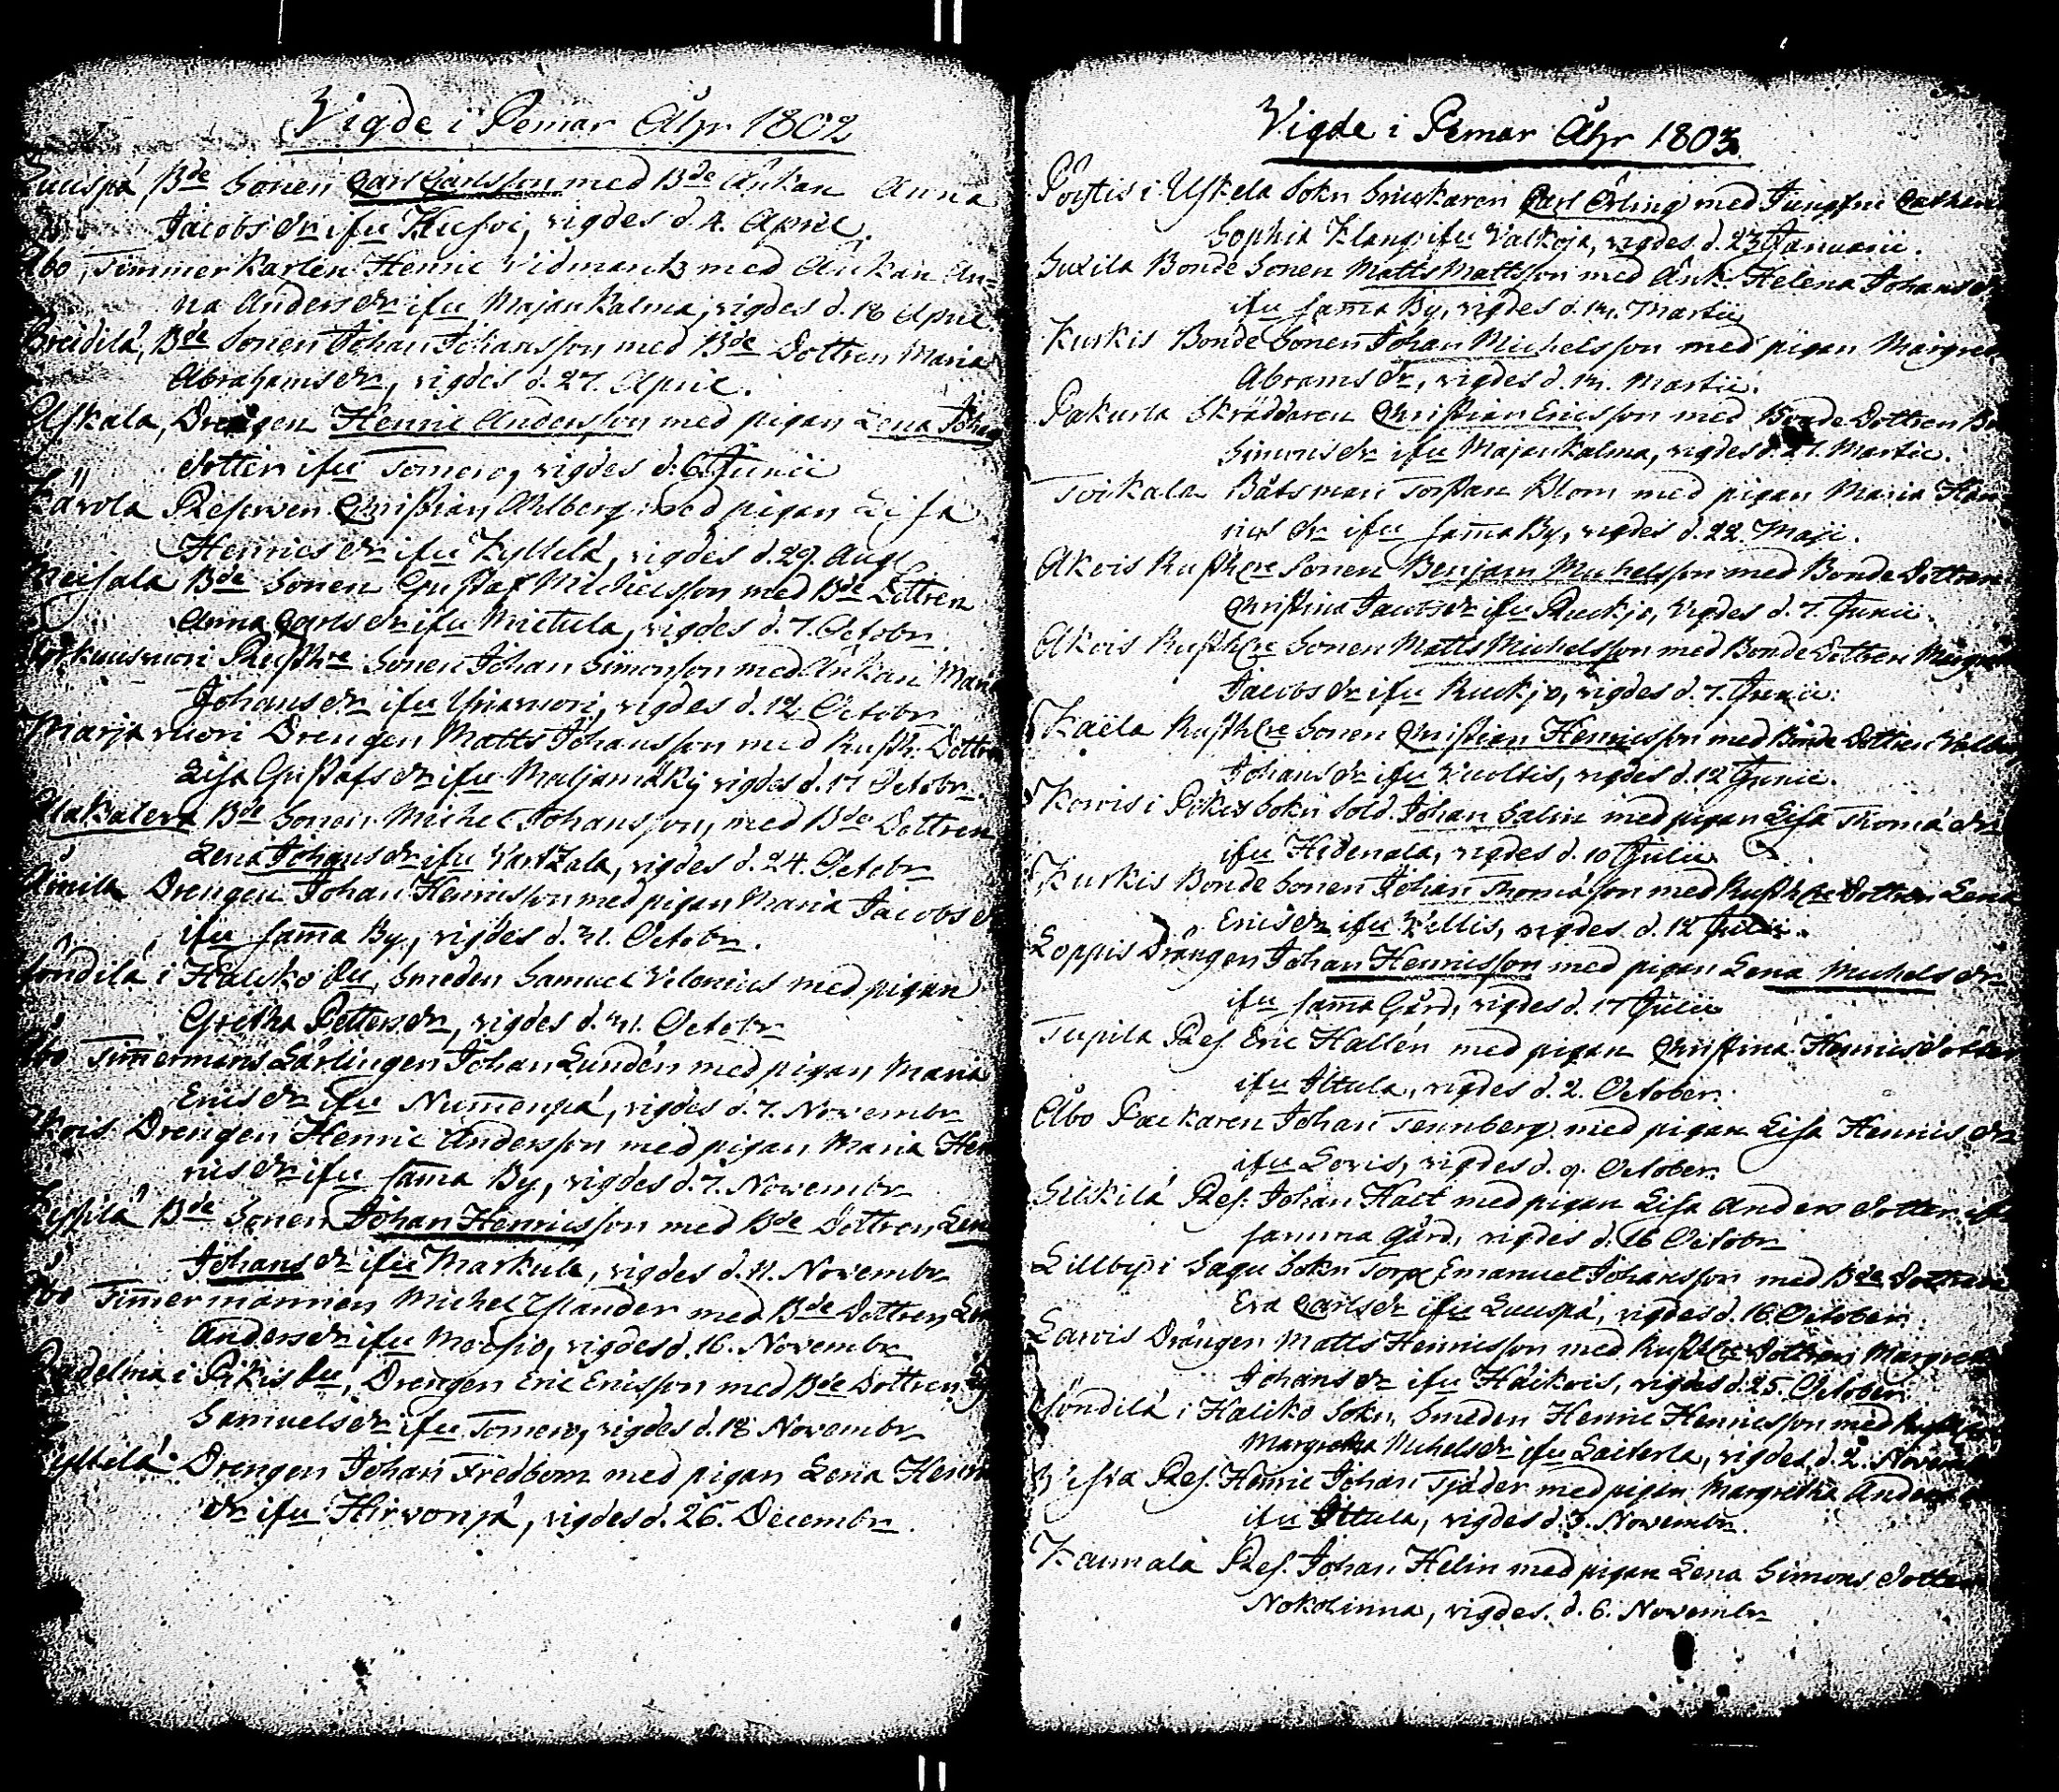 Vigde i Pemar Åhr 1802
Bde Sonen Carl Carlsson med Bde Änkan Anna
Jacobs dr ifrn vigdes d. 4. April.
Åbo, Timmerkarlen Henric Widmantz med Änkan An-
na Anders dr ifrn Majankalma, vigdes d. 18 April.
Preidilä, Bde Sonen Johan Johansson med Bde Dottren Maria
Abrahams dr, vigdes d. 27. April.
Uskala, Drengen Henric Andersson med pigan Lena Johans
dotter ifrn Tomero, vigdes d. 6. Junii
Reserven Christian Ahlberg med pigan Lisa
Henrics dr ifrn Kyttelä, vigdes d. 29. Aug.
Meisala Bde Sonen Gustaf Michelsson med Bde Dottren
Anna Carls dr ifrn Mietula, vigdes d. 7. Octobr
Rusthre Sonen Johan Simonsson med Änkan Maria
Johans dr ifrn vigdes d. 12. Octobr
Marjavuori Drengen Matts Johansson med Rusth. Dottren
Lisa Gustafs dr ifrn Maljamäky vigdes d. 17 Octobr
Bde Sonen Michel Johansson, med Bde Dottren
Lena Johans dr ifrn vigdes d. 24. Octobr
Drengen Johan Henricsson med pigan Maria Jacobs dr
ifrn samma By, vigdes d. 31. Octobr.
i Haliko Sn, Smeden Samuel Velonius med pigan
Gretha Petters dr, vigdes d. 31. Octobr
Åbo Timmermans Lärlingen Johan Lundén med pigan Maria
Erics dr ifrn Nummenpä, vigdes d. 7. Novembr
Akois Drengen Henric Andersson med pigan Maria Hen
rics dr ifrn samma By, vigdes d. 7. Novembr
Bde Sonen Johan Henricsson med Bde Dottren Lena
Johans dr ifrn Markula, vigdes d. 11. Novembr
Åbo Timmermannen Michel Ylander med Bde Dottren
Anders dr ifrn vigdes d. 16. Novembr
i Pikis Sn, Drengen Eric Ericsson med Bde Dottren
Samuels dr ifrn Tomero, vigdes d. 18 Novembr
Kyttelä Drengen Johan Fredbom med pigan Lena Henrics
dr ifrn Hirvonpä, vigdes d. 26. Decembr.
Vigde i Pemar Åhr 1803
i Uskela Sokn Snickaren Carl Örling med Jungfru Catharina
Sophia Klang ifrn Valkoja, vigdes d. 23 Januarii.
Suxila Bonde Sonen Matts Mattsson med Änk. Helena Johans dr
ifrn samma By, vigdes d. Martii
Kurkis Bonde Sonen Johan Michelsson med pigan Margreta
Abrams dr, vigdes d. Martii.
Pakurla Skräddaren Christian Ericsson med Bonde Dottren
Simons dr ifrn Majankalma, vigdes d. 27. Martii.
Tvikala Båtsman Torstan Blom med pigan Maria Hen
rics dr ifrn samma By, vigdes d. 22. Maji.
Akois Rusthre Sonen Benjam Michelsson med Bonde Dottren
Christina Jacobs dr ifrn Ruckjo, vigdes d. 7. Junii.
Akois Rusthre Sonen Matts Michelsson med Bonde Dottren Margreta
Jacobs dr ifrn Ruckjo, vigdes d. 7. Junii.
Kaela Rusthre Sonen Christian Henricsson med Bonde Dottren Valborg
Johans dr ifrn Vuoltis, vigdes d. 12 Junii.
Korvis i Pikis Sokn Sold. Johan Salin med pigan Lisa Thomæ dr
ifrn Hedenala, vigdes d. 10 Julii
Kurkis Bonde Sonen Johan Thomæson med Rusthre Dottren Lena
Erics dr ifrn Killis, vigdes d. 12 Julii.
Loppis Drängen Johan Henricsson med pigan Lena Michels dr
ifrn samma Gård, vigdes d. 17 Julii
Tupila Res Eric Hallén med pigan Christina Henrics dotter
ifrn Ittula, vigdes d. 2. October.
Åbo Packaren Johan Tennberg med pigan Lisa Henrics dr
ifrn Lovis, vigdes d. 9. October.
Silkilä Res. Johan Haet med pigan Lisa Anders dotter ifrn
samma gård, vigdes d. 16 Octobr
Lillby i Sagu Sokn Torp. Emanuel Johansson med Bde Dottren
Eva Carls dr ifrn Luuspä, vigdes d. 16. October.
Larvis Drängen Matts Henricsson med Rusthre Dottren Margreta
Johans dr ifrn Häikois, vigdes d. 25. October.
i Haliko Sokn, Smeden Henric Henricsson med
Margretha Michels dr ifrn Laiterla, vigdes d. 2. Novembr
Vista Res. Henric Johan Tjäder med pigan Margretha Anders
ifrn Ittula, vigdes d. 3. Novembr.
Kaumala Res. Johan Helin med pigan Lena Simons dotter
Nokolinna, vigdes d. 6. Novembr